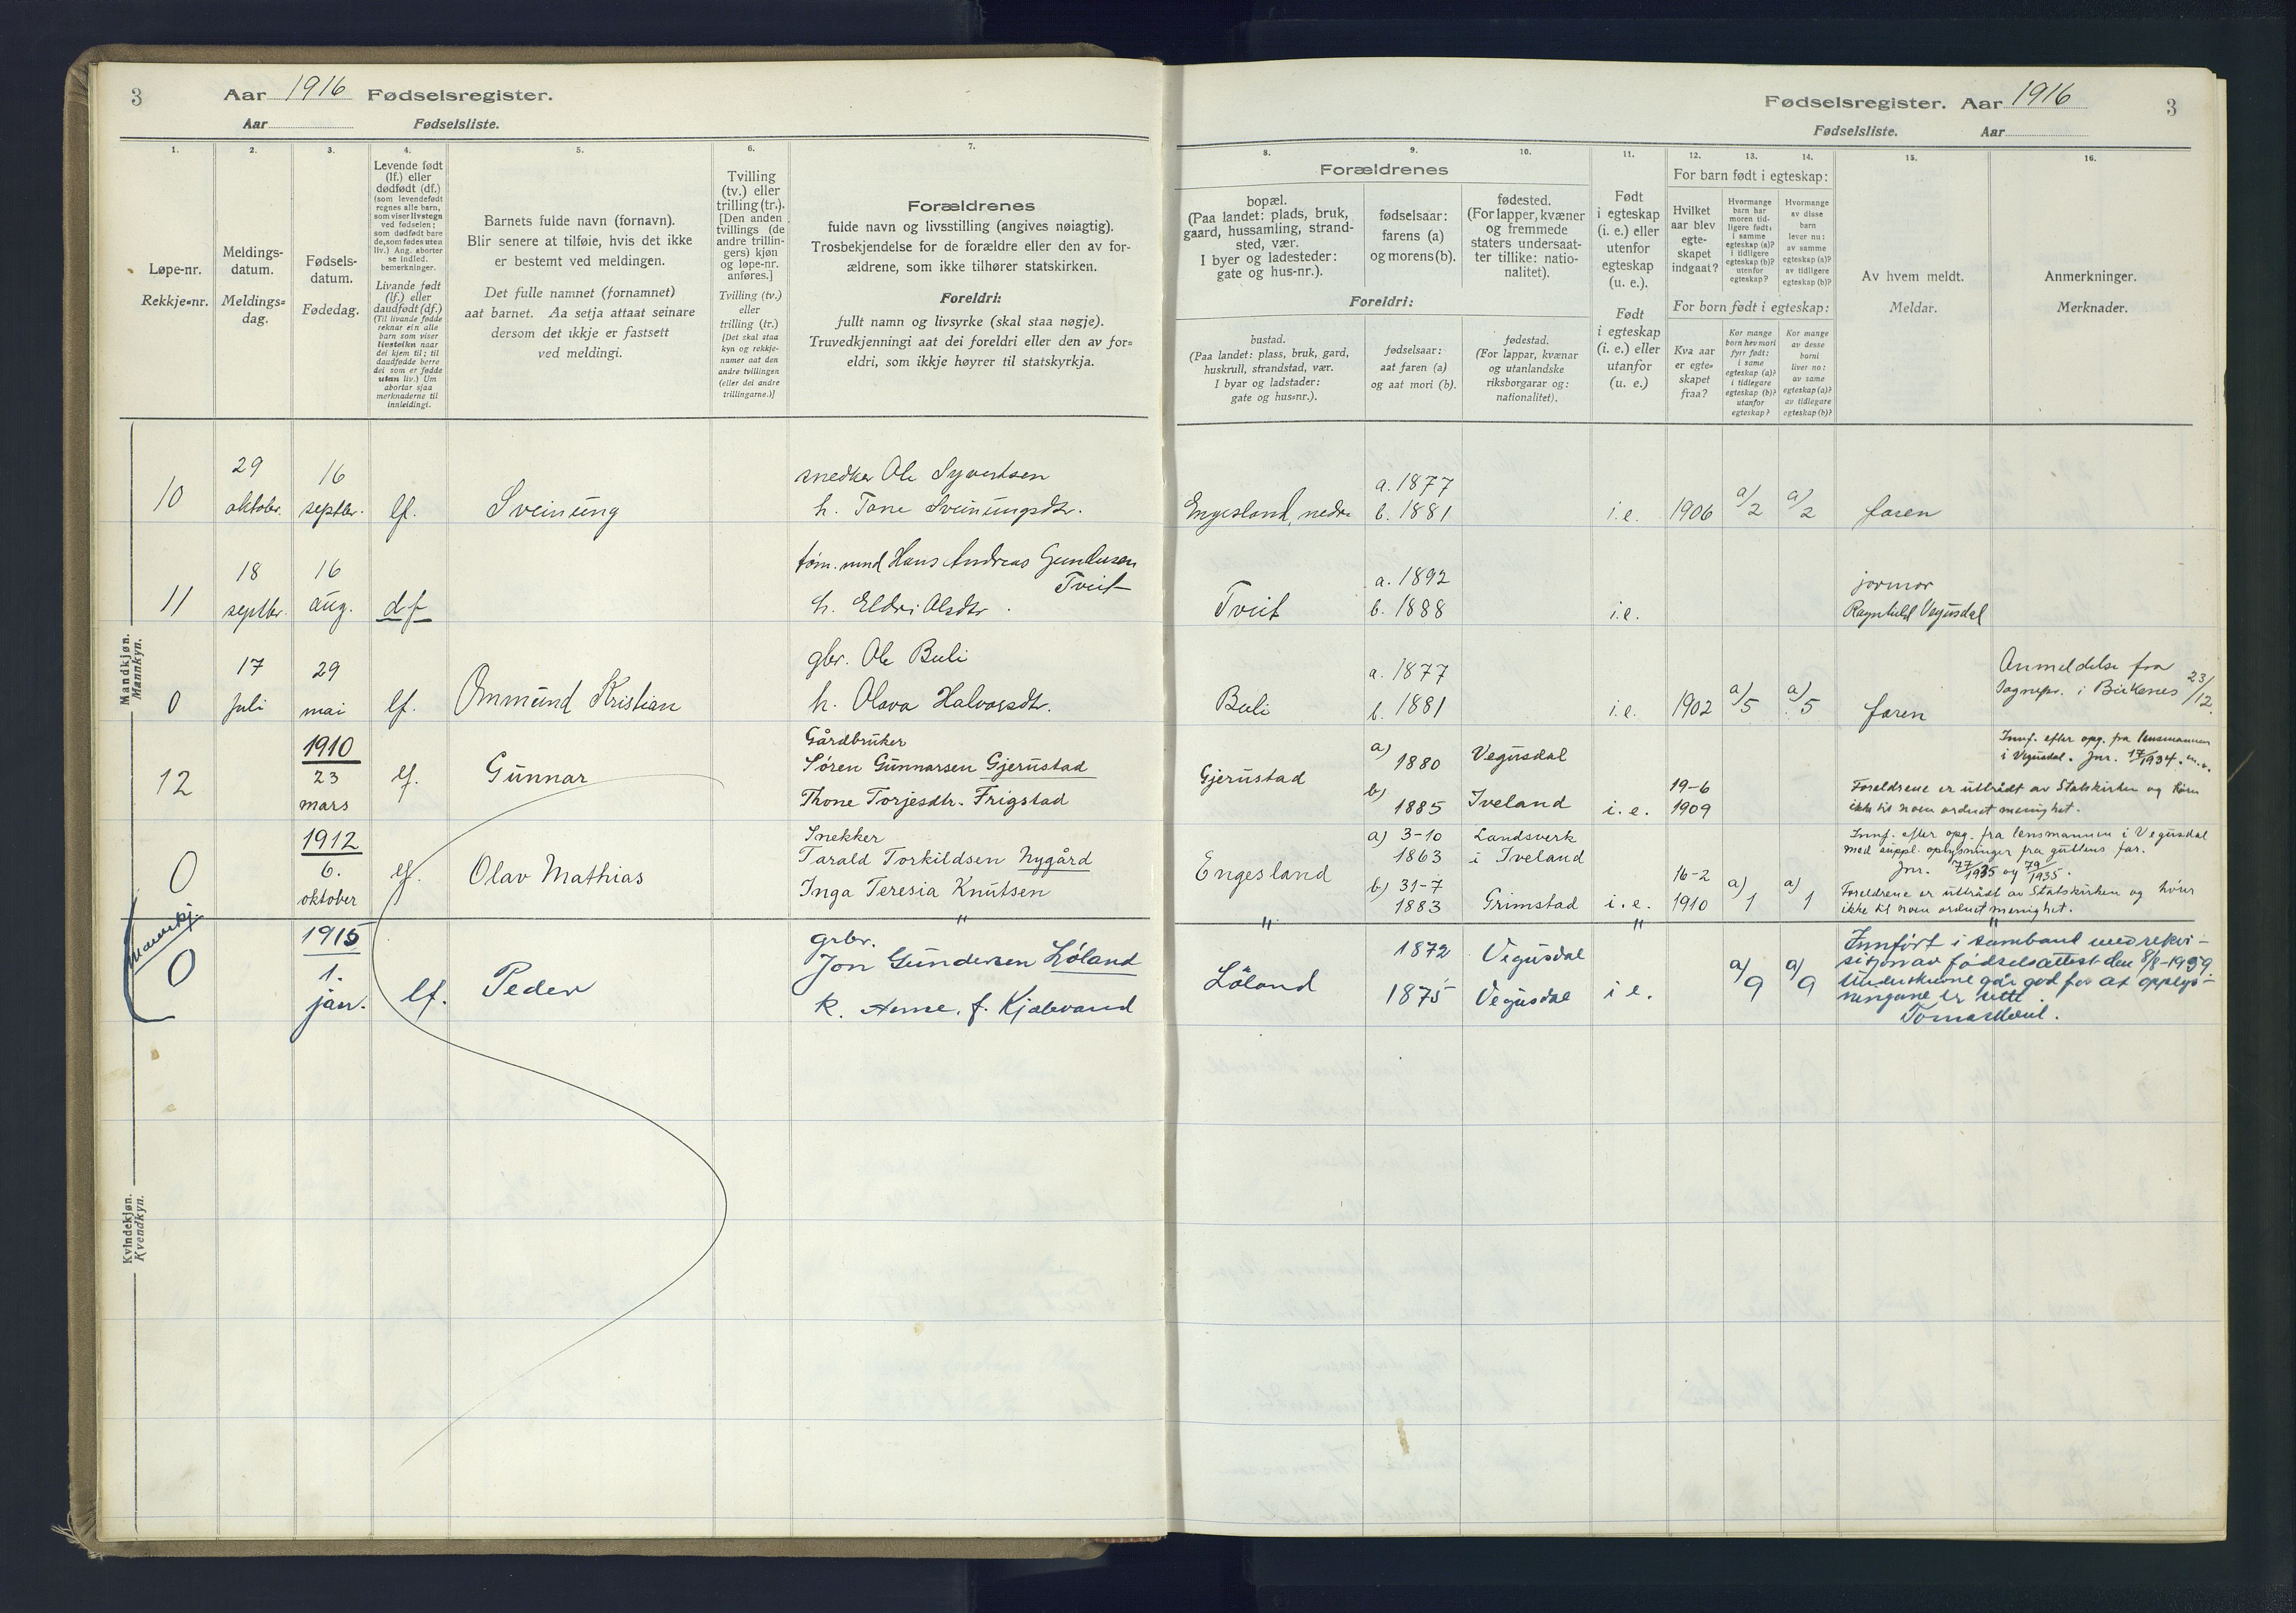 3
Aar 1916 Fødselsregister.
Aar Fødselsliste.
1.
Løpe-nr.
Rekkje-nr.
2.
Meldings-
datum.
Meldings-
dag.
3.
Fødsels-
datum.
Fødedag.
4.
Levende født
(lf.) eller
dødfødt (df.)
(som levendefødt
regnes alle barn,
som viser livstegn
ved fødselen;
som dødfødt bare
de, som fødes uten
liv.) Ang. aborter
se indled.
bemerkninger.
Livande født
(lf.) eller
daudfødt (df.)
(Til livande fødde
reknar ein alle
barn som viser
livsteikn naar
dei kjem til; til
daudfødde berre
dei som er fødde
utan liv.) Um
abortar sjaa
merknaderne til
innleidingi.
5.
Barnets fulde navn (fornavn).
Blir senere at tilføie, hvis det ikke
er bestemt ved meldingen.
Det fulle namnet (fornamnet)
aat barnet. Aa setja attaat seinare
dersom det ikkje er fastsett
ved meldingi.
6.
Tvilling
(tv.) eller
trilling (tr.).
[Den anden
tvillings (de
andre trillin-
gers) kjøn
og løpe-nr.
anføres.]
Tvilling (tv.)
eller
trilling (tr.)
[Det skal staa
kyn og rekkje-
numer aat den
andre tvillingen
(eller dei andre
trillingarne.)]
7.
Forældrenes
fulde navn og livsstilling (angives nøiagtig).
Trosbekjendelse for de forældre eller den av for-
ældrene, som ikke tilhører statskirken.
Foreldri:
fullt namn og livsyrke (skal staa nøgje).
Truvedkjenningi aat dei foreldri eller den av for-
eldri, som ikkje høyrer til statskyrkja.
Mandkjøn.
Mannkyn.
10
29
oktober.
16
septbr.
lf.
Sveinung
snedker Ole Syvertsen
h. Tone Sveinungsdtr.
11
18
septbr.
16
aug.
df
tøm. mnd Hans Andreas Gundersen
Tveit
h. Eldri Olsdtr.
0
17
juli
29
mai
lf.
Ommund Kristian
gbr. Ole Buli
h. Olava Halvorsdtr.
12
1910
23
mars
lf.
Gunnar
Gårdbruker
Søren Gunnarsen Gjerustad
Thone Torjesdtr. Frigstad
0
1912
6.
oktober
lf.
Olav Mathias
Snekker
Tarald Torkildsen Nygård
Inga Teresia Knutsen
"
Mannkj.
0
1915
1.
jan.
lf.
Peder
grbr.
Jon Gundersen Löland
k. Anne, f. Kjælevand
Kvindekjøn.
Kvendkyn.
Fødselsregister. Aar 1916
3
Fødselsliste. Aar
8. 9. 10.
Forældrenes
bopæl.
(Paa landet: plads, bruk,
gaard, hussamling, strand-
sted, vær.
I byer og ladesteder:
gate og hus-nr.).
fødselsaar:
farens (a)
og morens (b).
fødested.
(For lapper, kvæner
og fremmede
staters undersaat-
ter tillike: natio-
nalitet).
Foreldri:
bustad.
(Paa landet: plass, bruk, gard,
huskrull, strandstad, vær.
I byar og ladstader:
gate og hus-nr.).
fødselsaar:
aat faren (a)
og aat mori (b).
fødestad.
(For lappar, kvænar
og utanlandske
riksborgarar og:
nationalitet).
11.
Født
i egteskap
(i. e.) eller
utenfor
egteskap
(u. e.).
Født
i egteskap
(i. e.) eller
utanfor
(u. e.)
12. 13. 14.
For barn født i egteskap:
Hvilket
aar blev
egte-
skapet
indgaat?
Hvormange
barn har
moren tid-
ligere født:
i samme
egteskap (a)?
i tidligere
egteskap (b)?
utenfor
egteskap?
Hvormange
av disse
barn
lever nu:
av samme
egteskap (a)?
av tidligere
egteskap (b)?
For born født i egteskap:
Kva aar
er egte-
skapet
fraa?
Kor mange
born hev mori
fyrr født:
i same
egteskap (a)?
i tidlegare
egteskap (b)?
utanfor
egteskap?
Kor mange
av desse
borni
liver no:
av same
egteskap (a)?
av tidlegare
egteskap (b)?
15.
Av hvem meldt.
Meldar.
16.
Anmerkninger.
Merknader.
Engesland, nedre
a. 1877
b. 1881
i.e.
1906
a/2
a/2
faren
Tveit
a. 1892
b. 1888
i.e.
jormor
Ragnhild Vegusdal
Buli
a. 1877
b. 1881
i.e.
1902
a/5
a/5
faren
Anmeldelse fra
Sognepr. i Birkenes 23/12.
Gjerustad
a) 1880
b) 1885
Vegusdal
Iveland
i.e.
19-6
1909
Innf. efter opg. fra lensmannen
i Vegusdal. Jnr. 17/1934.
Foreldrene er utrådt av Statskirken og hörer
ikke til noen ordnet menighet.
Engesland
a) 3-10
1863
b) 31-7
1883
Landsverk
i Iveland
Grimstad
i.e.
16-2
1910
a) 1
a) 1
Innf. efter opg. fra lensmannen i Vegusdal
med suppl. oplysninger fra guttens far.
Jnr. 77/1935 og 79/1935.
Foreldrene er utrådt av Statskirken og hörer
ikke til noen ordnet menighet.
" " "
Løland
1872
1875
Vegusdal
Vegusdal
i e.
a/9
a/9
Innført i samband med rekvi-
sisjon av fødselsattest den 8/8-1959.
Underskrivne går god for at opplys-
ningane er rette.